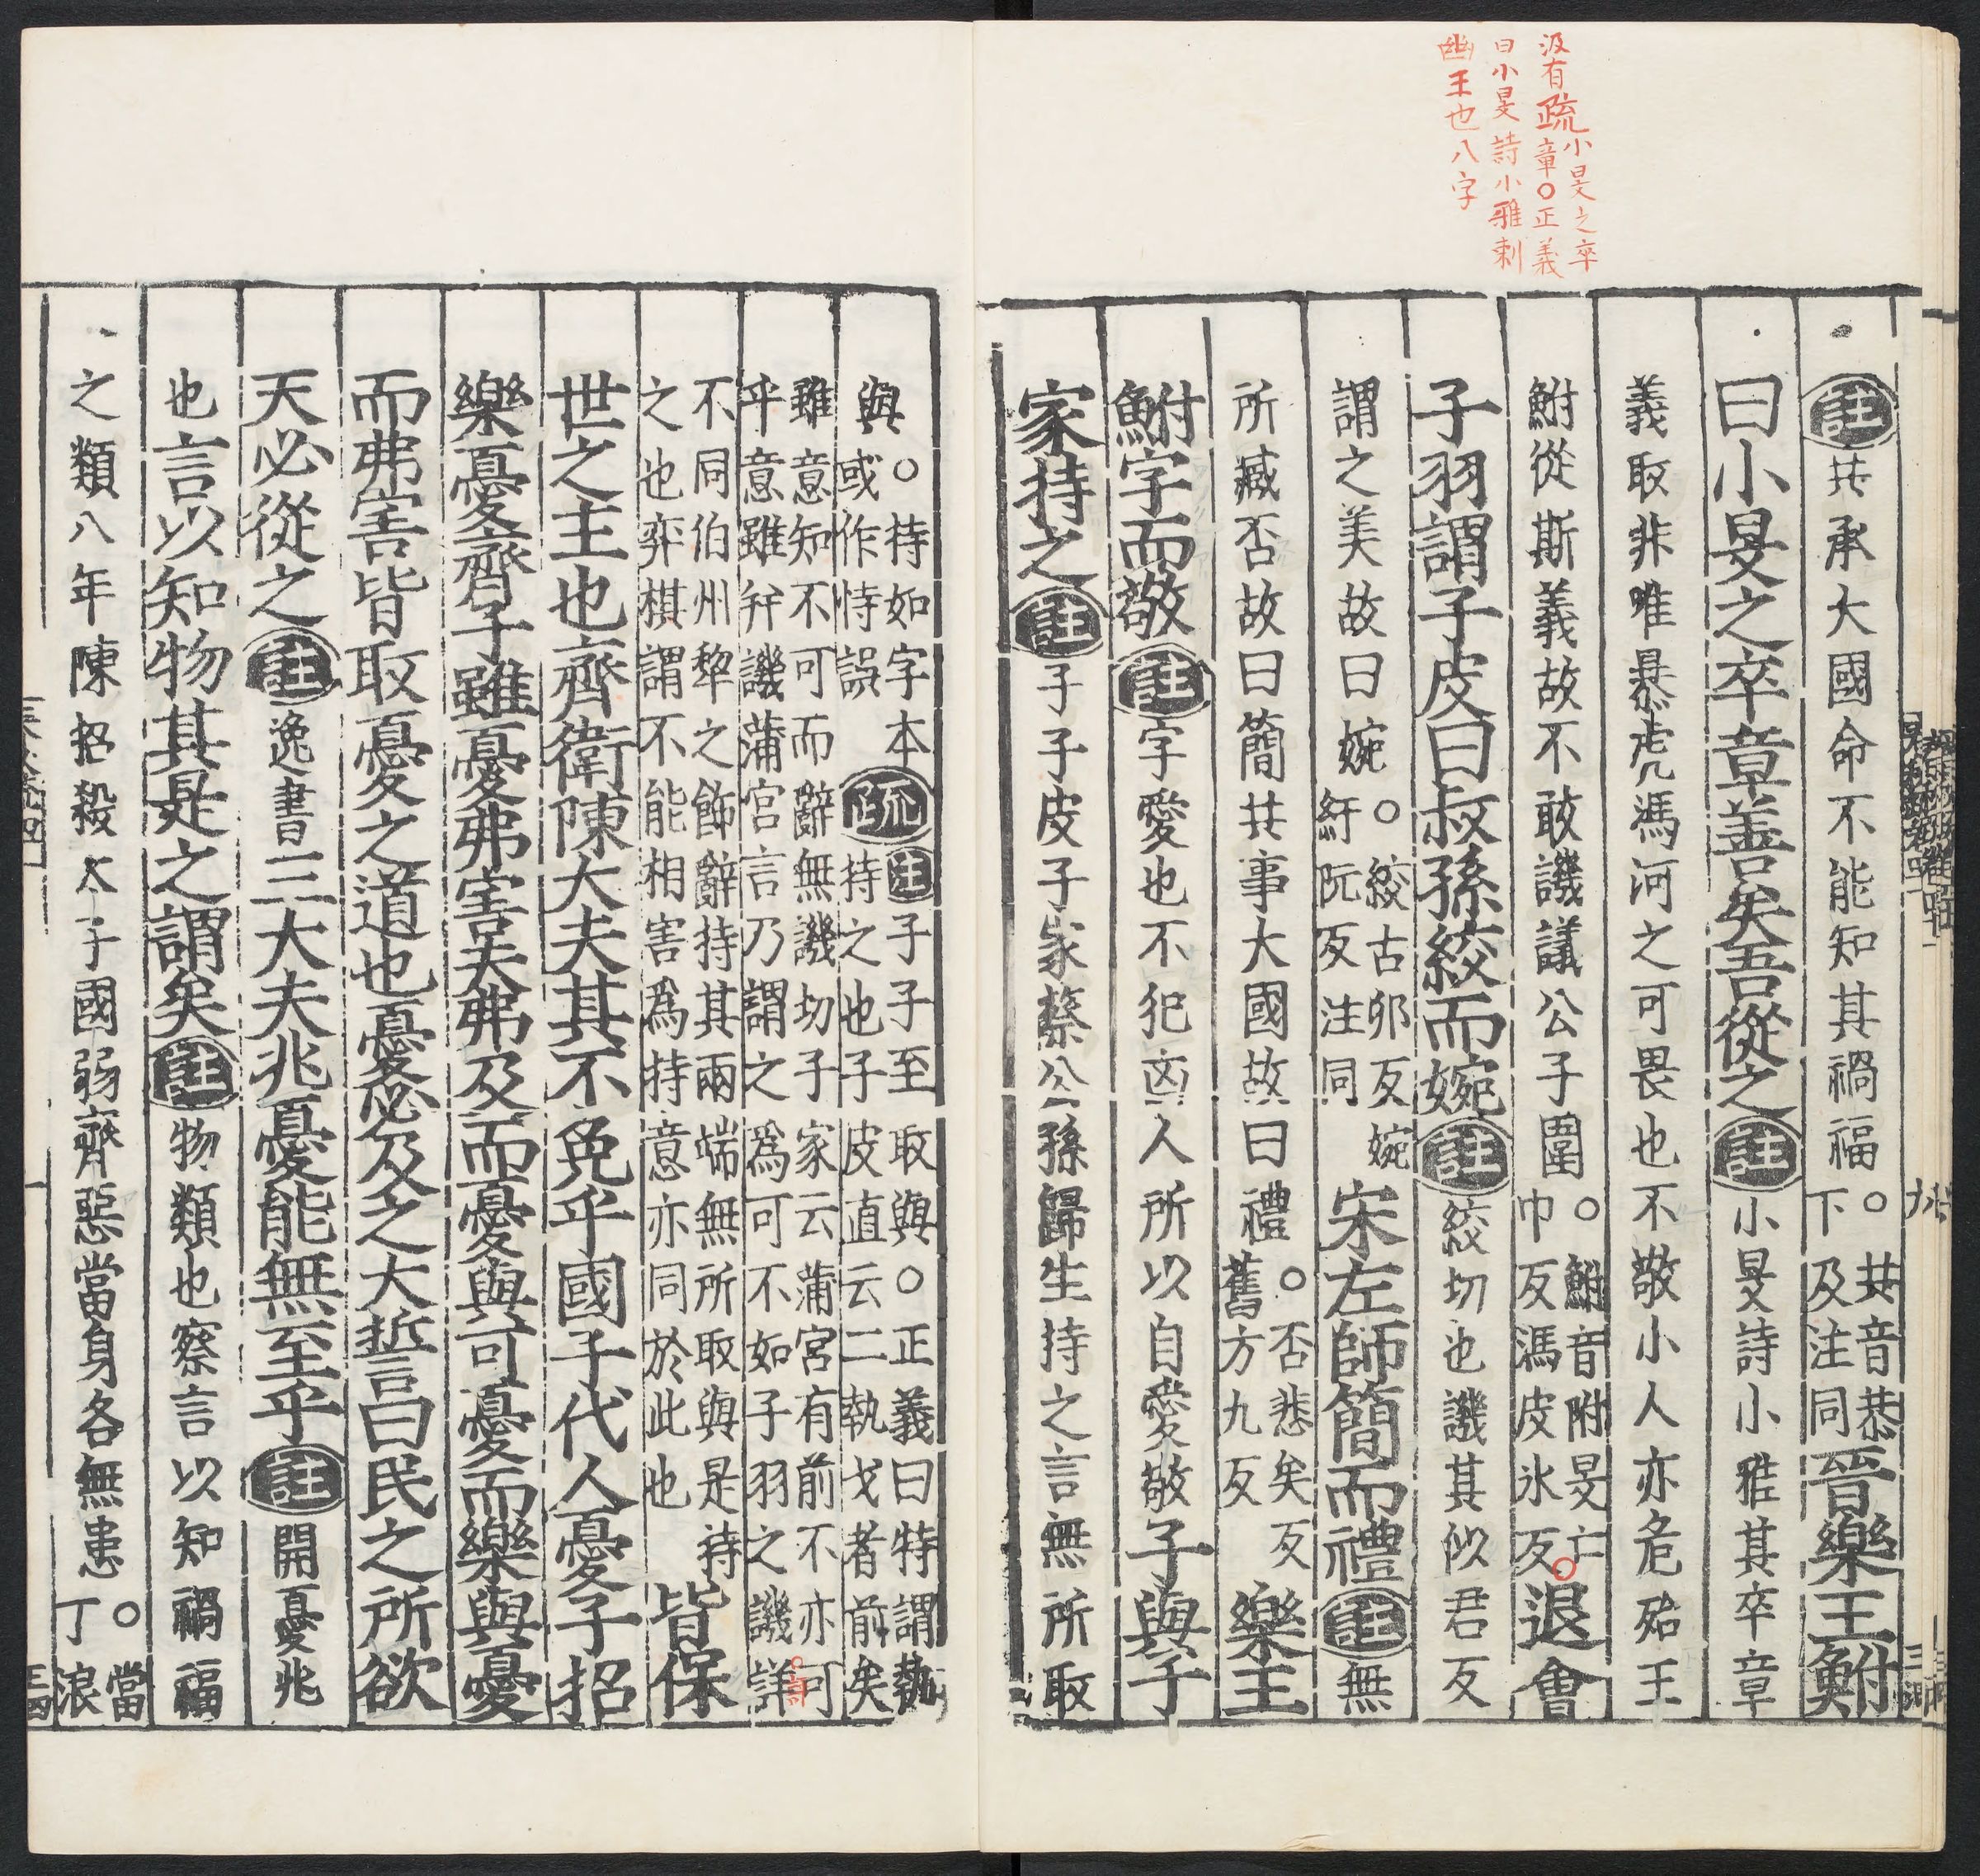 汲有疏小旻之卒章○正義
曰小旻詩小雅刺
幽王也八字
註共承大國命不能知其禍福○共音恭下及注同晉樂王鮒
曰小旻之卒章善矣吾從之註小旻詩小雅其卒章
義取非唯暴虎馮河之可畏也不敬小人亦危殆王
鮒從斯義故不敢譏議公子圍○鮒音附旻亡巾反馮皮冰反○退會
子羽謂子皮曰叔孫絞而婉註絞切也譏其似君反
謂之美故曰婉○絞古卯反婉紆阮反注同宋左師簡而禮註無
所臧否故曰簡共事大國故曰禮○否悲矣反舊方九反樂王
鮒字而敬註字愛也不犯凶人所以自愛敬子與子
家持之註子子皮子家蔡公孫歸生持之言無所取
與○持如字本或作恃誤疏註子子至取與○正義曰特謂執持之也子皮直云二執戈者前矣
雖意知不可而辭無譏切子家云蒲宮有前不亦可乎意雖弁譏蒲宮言乃謂之為可不如子羽之譏詳
不同伯州犂之飾辭持其兩端無所取與是持之也弈棋謂不能相害爲持意亦同於此也皆保
世之主也齊衛陳大夫其不免乎國子代人憂子招
樂憂齊子雖憂弗害夫弗及而憂與可憂而樂與憂
而弗害皆取憂之道也憂必及之大誓曰民之所欲
天必從之註逸書三大夫兆憂能無至乎註開憂兆
也言以知物其是之謂矣註物類也察言以知禍福
之類八年陳招殺大子國弱齊惡當身各無患○當丁浪